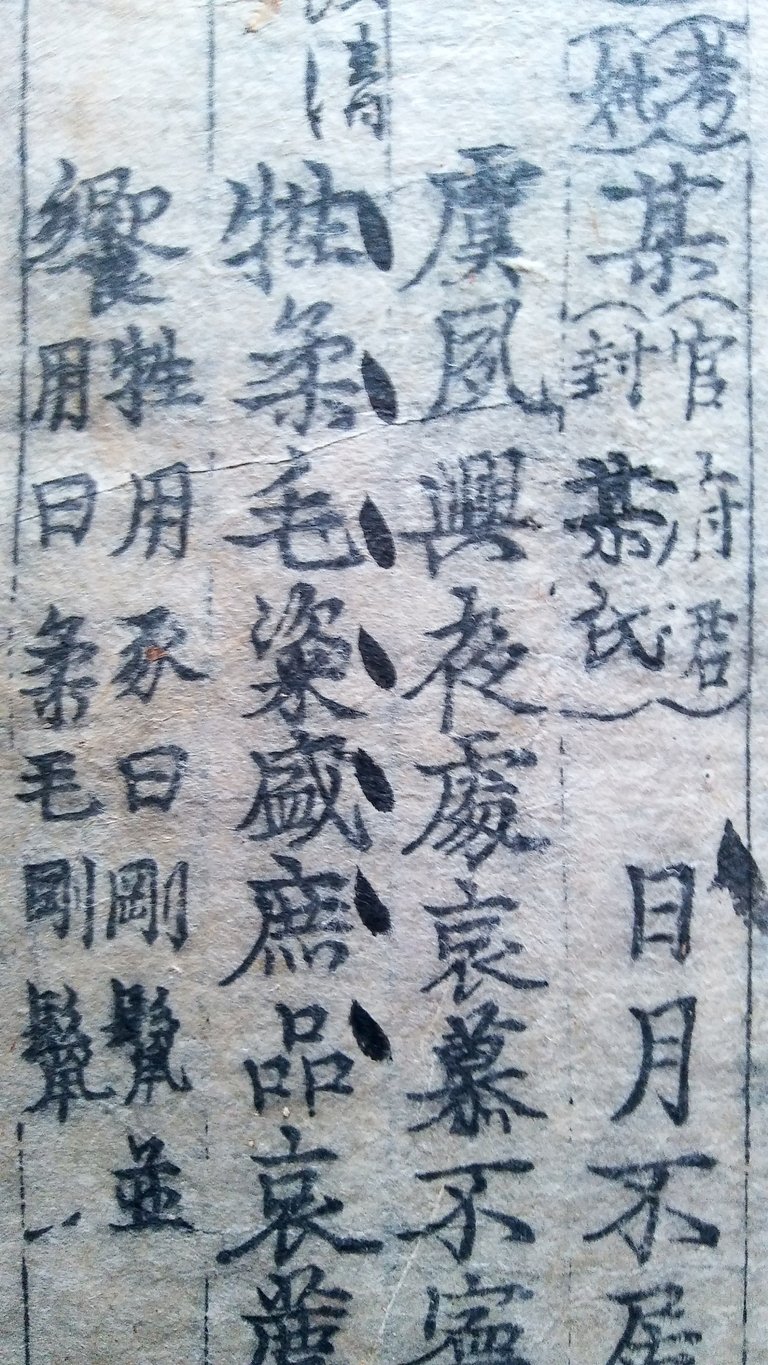 考
妣
某
官府君
封某氏
日月不居
虞夙興夜處哀慕不寧
清
牲柔毛粢盛庶品哀薦
饗
牲用豕曰剛鬣並
用曰柔毛剛鬣